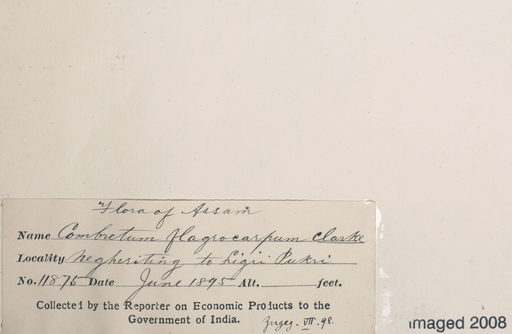 Flora of Assam
Name Combretum flagrocarpum Clarke
Locality Negheriting to Ligri Pukri
No. 11875 Date June 1895 Alt. feet.
Collected by the Reporter on Economic Products to the
Government of India.
VIII. 98.
imaged 2008